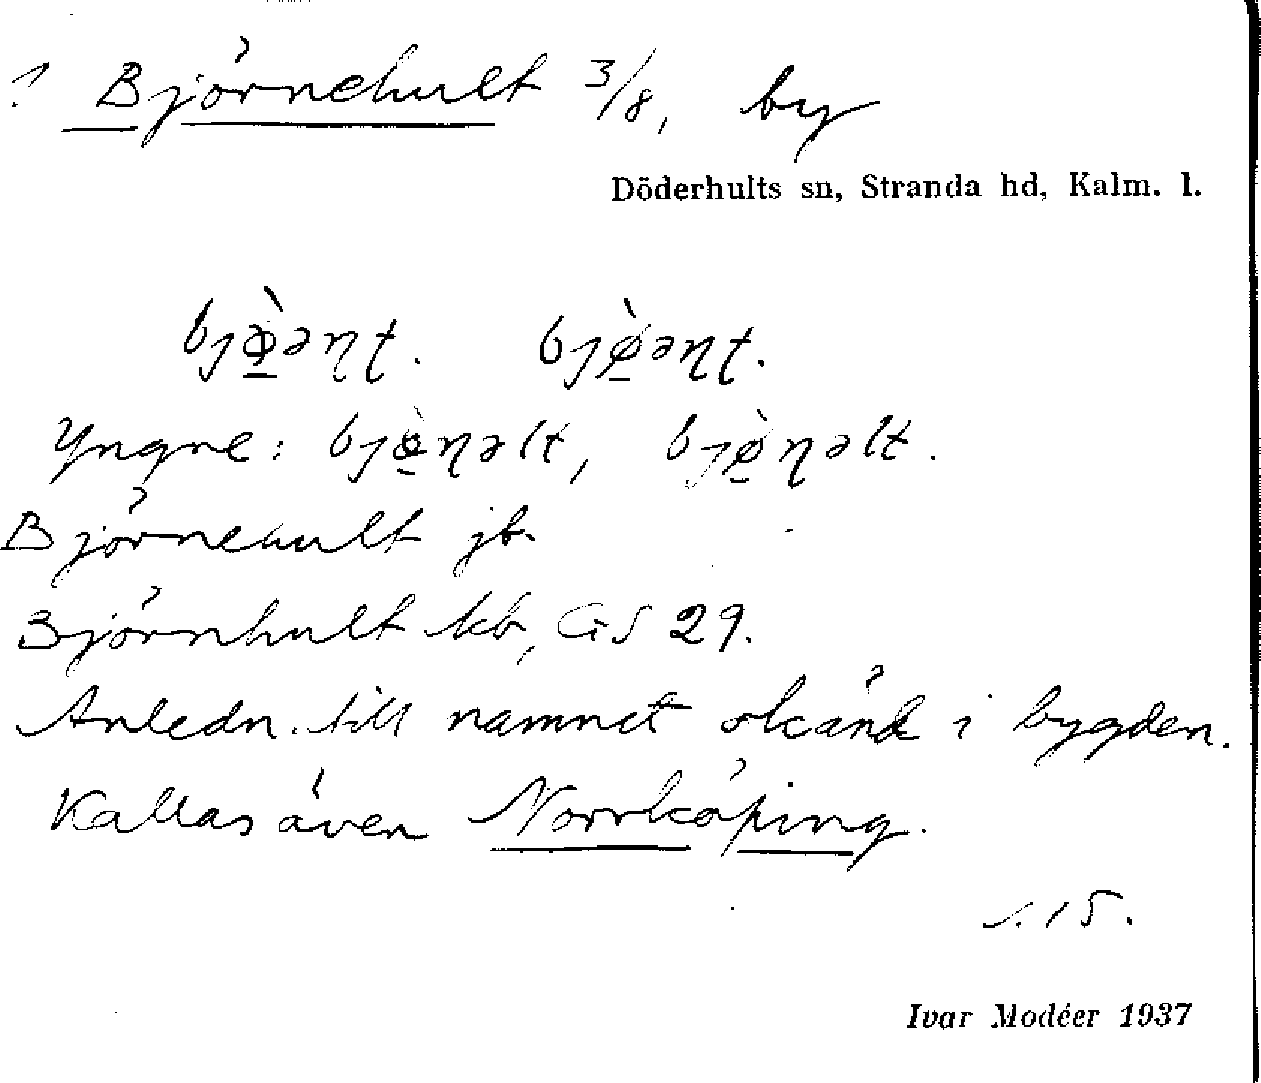 ! Björnehult 3/8, by
Döderhults sn, Stranda hd, Kalm. l.
bjø̀əɳʈ. bjø̀əɳʈ.
Yngre: bjø̀ɳəlt, bjø̀ɳəlt.
Björnehult jb.
Björnhult kb, GS 29.
Anledn. till namnet okänd i bygden.
Kallas även Norrköping.
s. 15.
Ivar Modéer 1937